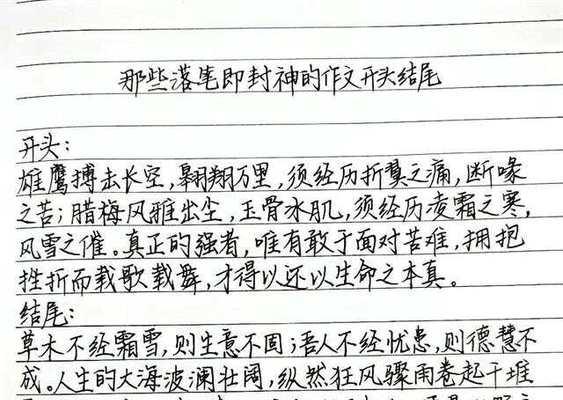 那些落笔即封神的作文开头结尾
开头:
雄鹰搏击长空,翱翔万里,须经历折翼之痛,断喙
之苦;腊梅风雅出尘,玉骨冰肌,须经历凌霜之寒,
风雪之催。真正的强者,唯有敢于面对苦难,拥抱
挫折而载歌载舞,才得以还以生命之本真。
结尾:
草木不经霜雪,则生意不固;吾人不经忧患,则德慧不
成。人生的大海波澜壮阔,纵然狂风骤雨卷起千堆